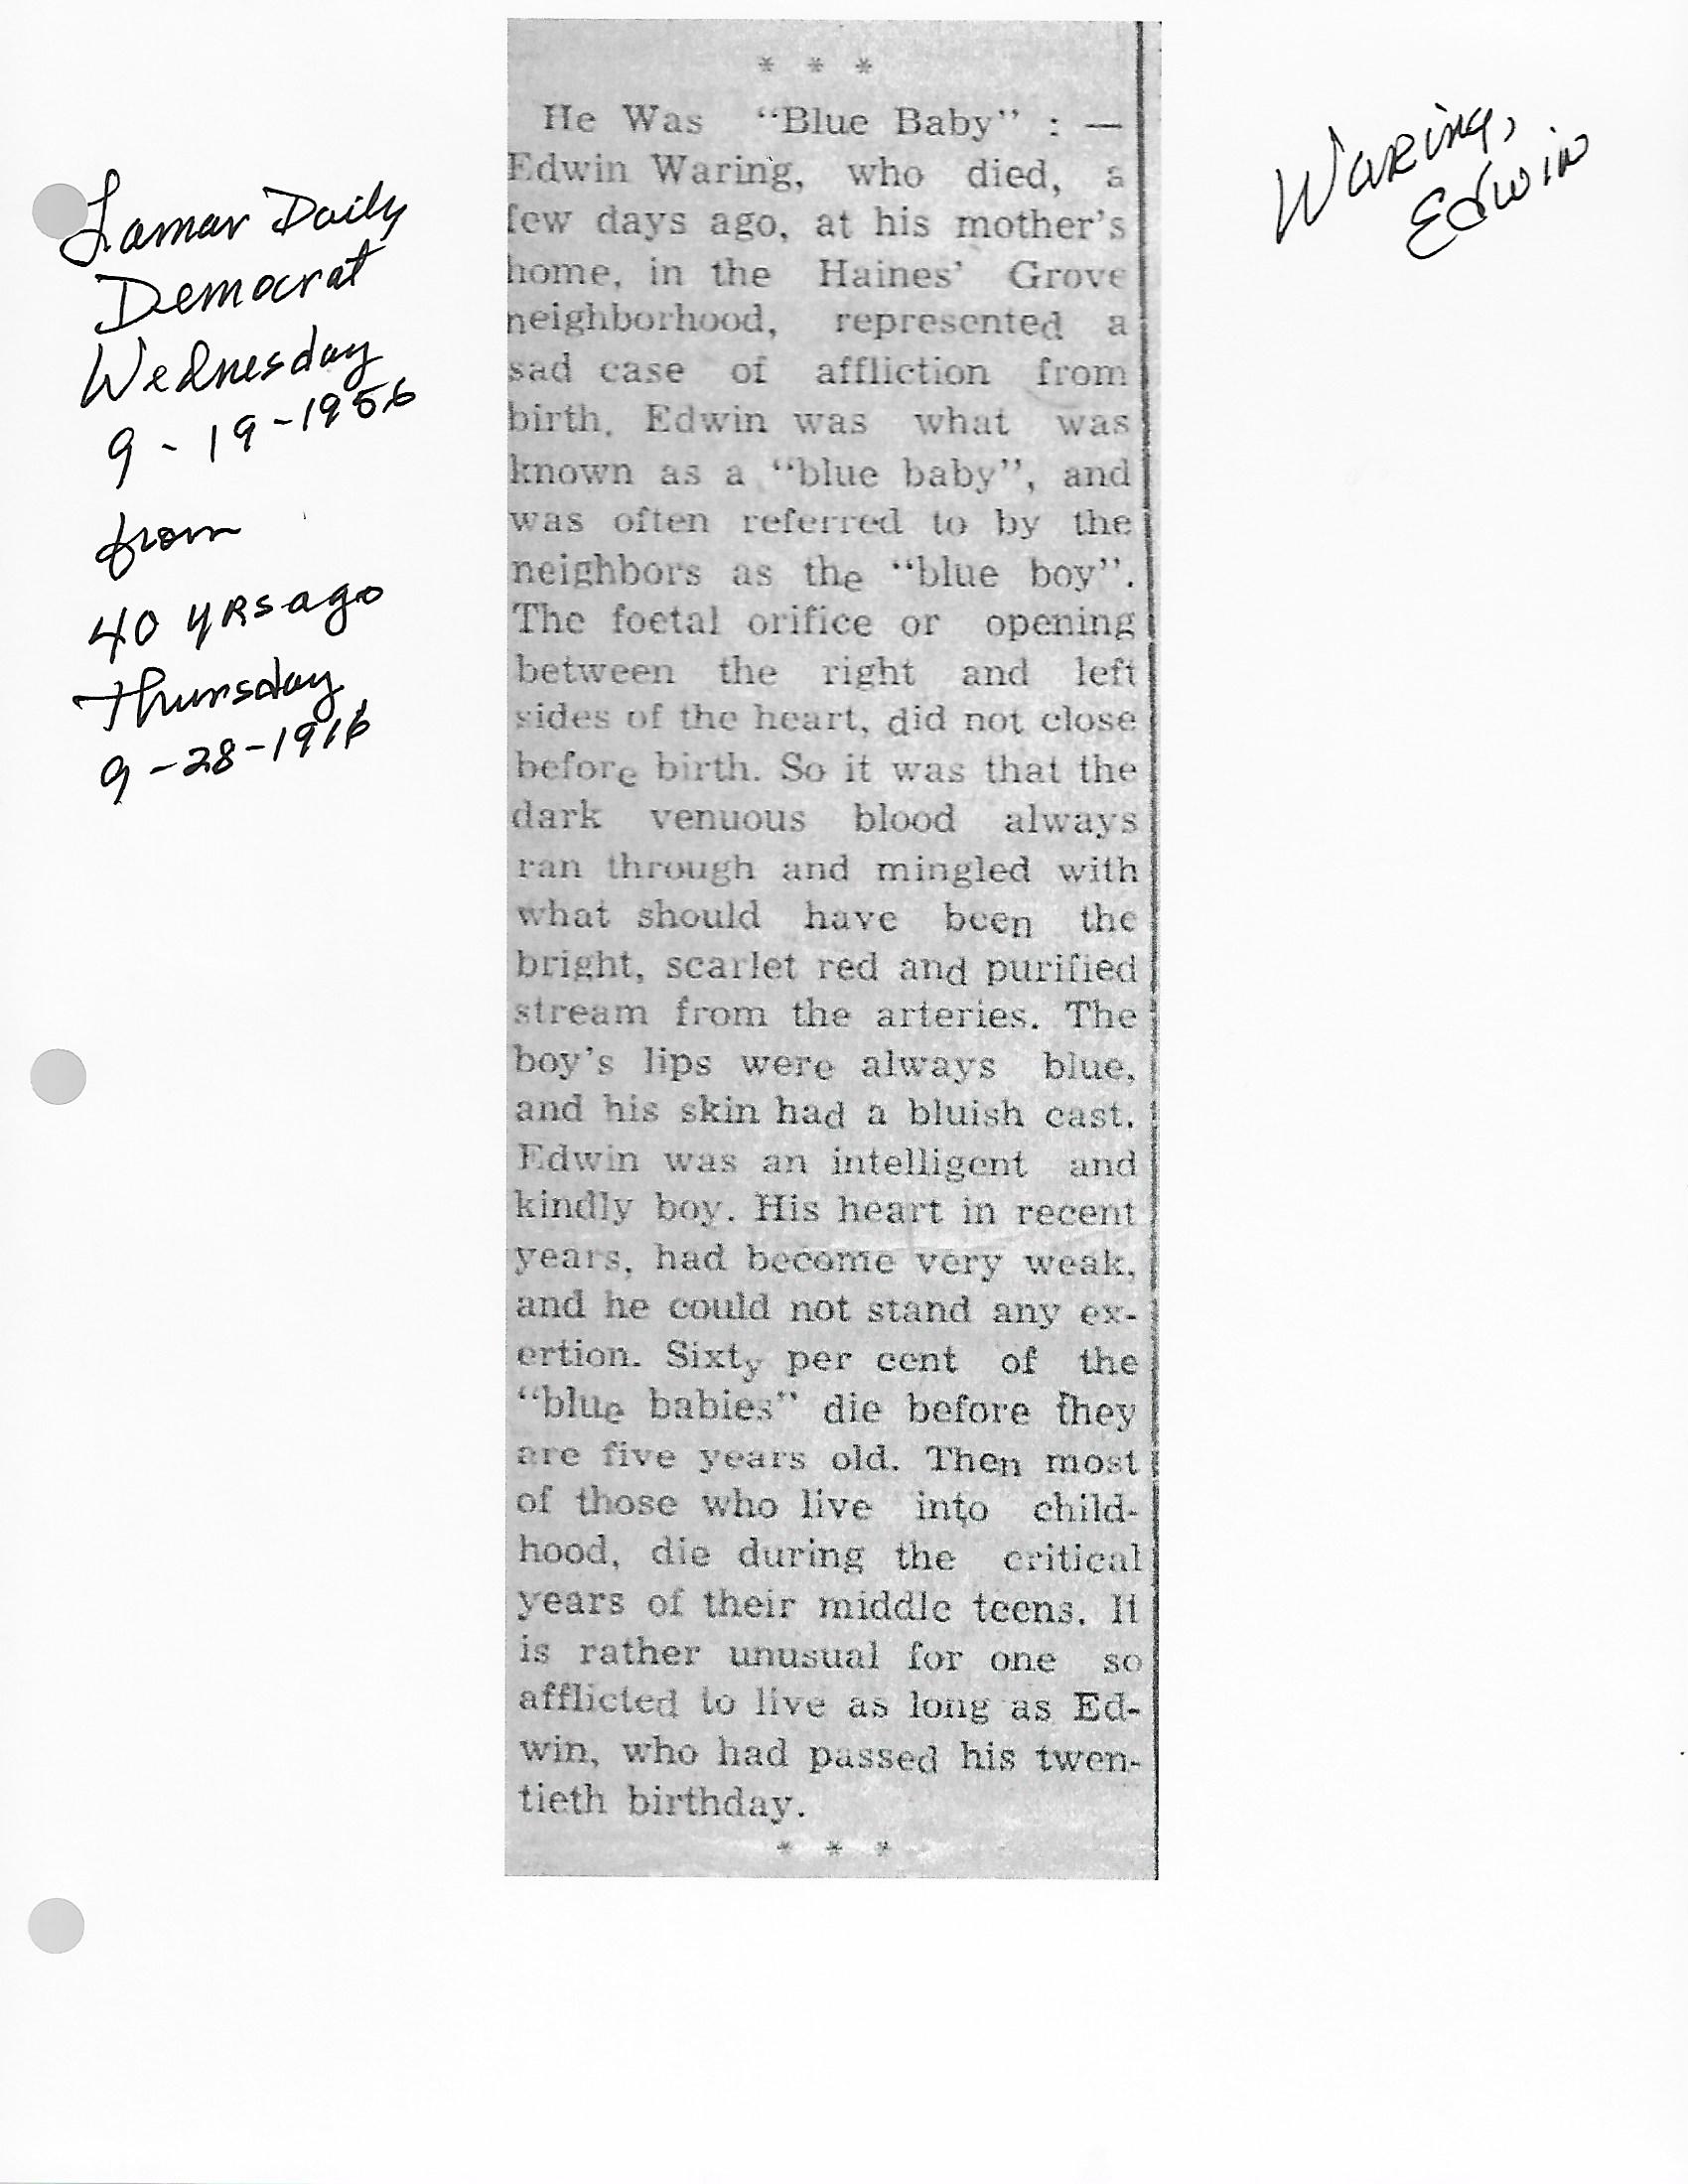 Lamar Daily
Democrat
Wednesday
9-19-1956
from
40 yrs ago
Thursday
9-28-1916
Waring,
Edwin
* * *
He Was "Blue Baby" : —
Edwin Waring, who died, a
few days ago, at his mother's
home, in the Haines' Grove
neighborhood, represented a
sad case of affliction from
birth. Edwin was what was
known as a "blue baby", and
was often referred to by the
neighbors as the "blue boy".
The foetal orifice or opening
between the right and left
sides of the heart, did not close
before birth. So it was that the
dark venuous blood always
ran through and mingled with
what should have been the
bright, scarlet red and purified
stream from the arteries. The
boy's lips were always blue,
and his skin had a bluish cast.
Edwin was an intelligent and
kindly boy. His heart in recent
years, had become very weak,
and he could not stand any ex-
ertion. Sixty per cent of the
"blue babies" die before they
are five years old. Then most
of those who live into child-
hood, die during the critical
years of their middle teens. It
is rather unusual for one so
afflicted to live as long as Ed-
win, who had passed his twen-
tieth birthday.
* * *